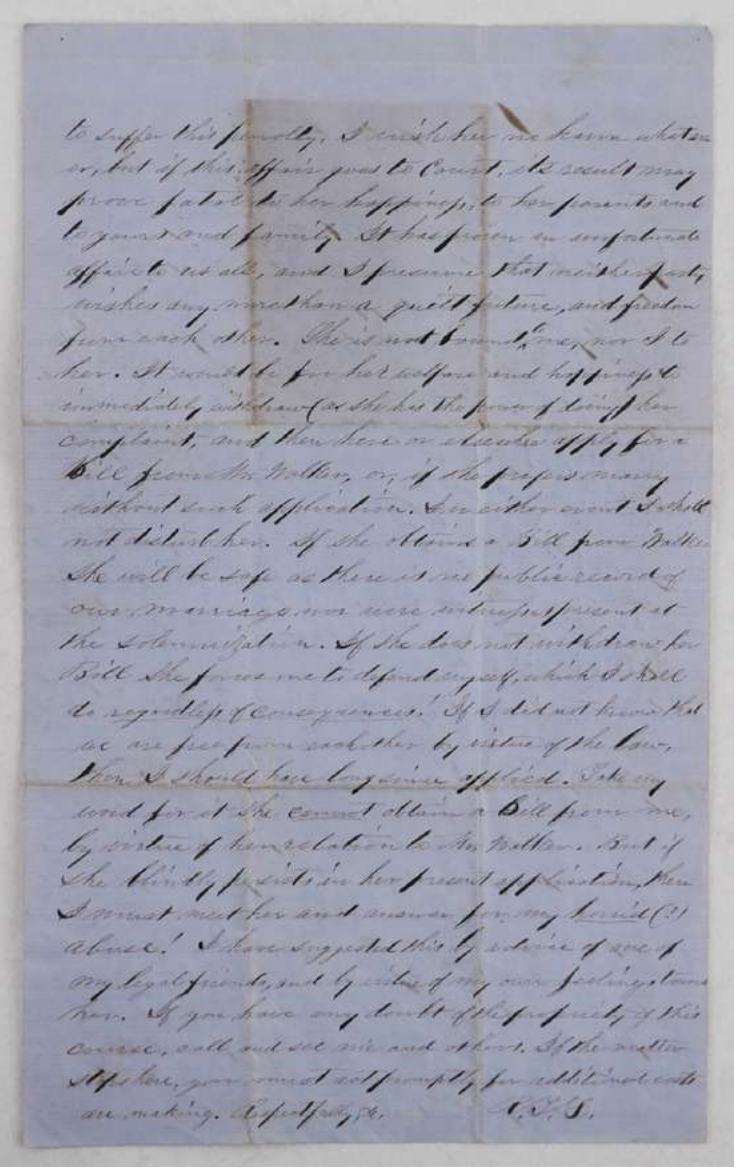 to suffer this penalty. I wish her no harm whatev-
er, but if this affair goes to Court, its result may
prove fatal to her happiness, to her parents and
to yours and family. It has proven an unfortunate
affair to us all, and I presume that neither party
wishes any more than a quiet future, and freedom
from each other. She is not bound to me, nor I to
her. It would be for her welfare and happiness to
immediately withdraw (as she has the power of doing) her
complaint, and then here or elsewhere apply for a
Bill from Mr Walker, or, if she prefers marry
without such application. In either event I shall
not disturb her. If she obtains a Bill from Walker
she will be safe as there is no public record of
our marriage nor were witnesses present at
the solemnization. If she does not withdraw her
Bill she forces me to defend myself, which I shall
do regardless of consequences! If I did not know that
we are free from each other by virtue of the law,
then I should have long since applied. Take my
word for it she cannot obtain a Bill from me,
by virtue of her relation to Mr Walker. But if
she blindly persists in her present application, then
I must meet her and answer for my horrid (?)
abuse! I have suggested this by advice of one of
my legal friends, and by virtue of my own feelings toward
her. If you have any doubt of the propriety of this
course, call and see me and others. If the matter
stops here, you must act promptly for additional costs
are making. Respectfully, &c.